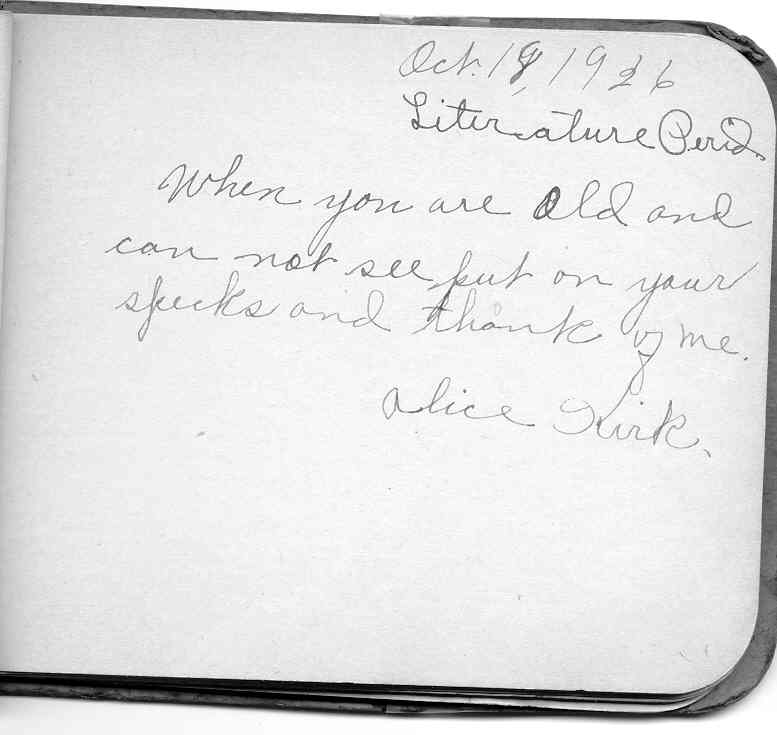 Oct. 18, 1926
Literature Period.
When you are old and
can not see put on your
specks and thank of me.
Alice Kirk.